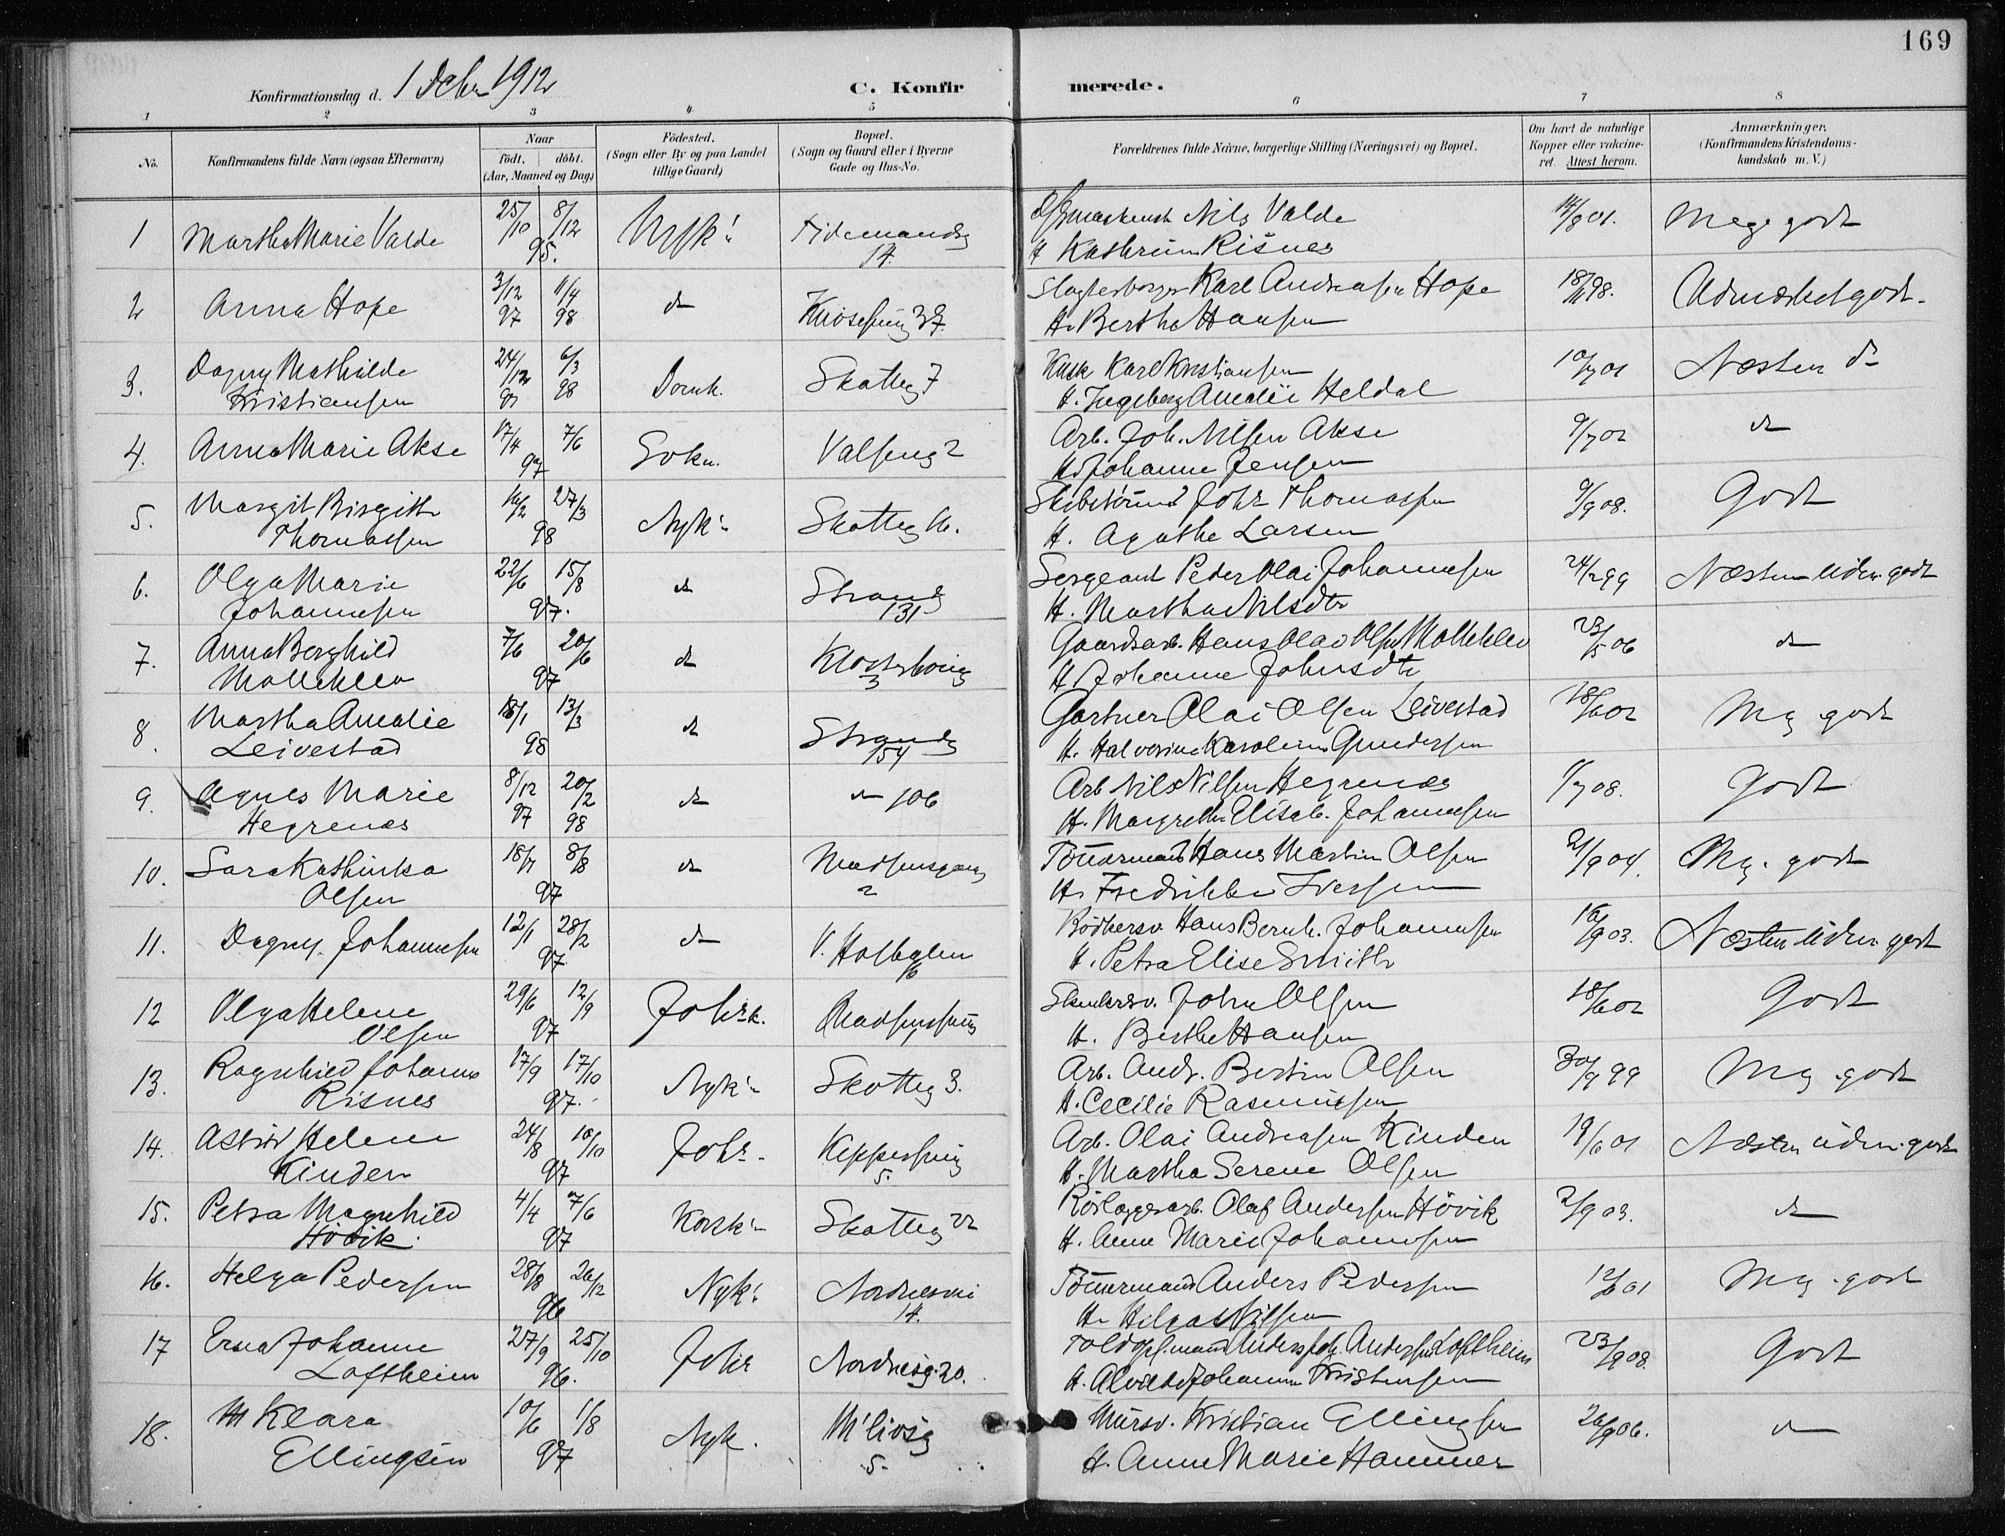 169
Konfirmationsdag d. 1 Decbr 1912 C. Konfirmerede.
1 2 3 4 5 6 7 8
No. Konfirmandens fulde Navn (ogsaa Efternavn) Naar født. døbt. (Aar, Maaned og Dag) Fødested. (Sogn eller By og paa Landet tillige Gaard) Bopæl. (Sogn og Gaard eller i Byerne Gade og Hus-No. Forældrenes fulde Navne, borgerlige Stilling (Næringsvei) og Bopæl. Om havt de naturlige Kopper eller vaccineret. Attest herom. Anmærkninger. (Konfirmandens Kristendomskundskab m. V.)
1 Martha Marie Valde 25/10 8/12 95. Nyk. Tidemandsg 14. Nils Valde
H Kathrine Risnes 01. Meget godt
2 Anna Hope 3/12 97 11/4 98 do Karl Andreassen Hope
H. Berthe Hansen 98. Udmærket godt.
3. Dagny Mathilde Kristiansen 24/12 97 6/3 98 Domk. Skotteg 7 Kusk Karl Kristiansen
H. Ingeborg Amalie Heldal 10/7 01 Næsten do
4. Anna Marie Akse 17/4 7/6 97 Sokn. Arb. Joh. Nilsen Akse
H. Johanne Jensen 9/7 02 do
5. Margit Birgitte Thomassen 16/2 27/3 98 Nyk. Skotteg 16. Johs Thomassen
H. Agathe Larsen 9/9 08. Godt
6. Olga Marie Johannesen 22/6 15/8 97. do Strandg 131 Sergeant Peder Olai Johannesen
H. Martha Nilsdtr 24/2 99 Næsten udm. godt
7. Anna Borghild Molleklev 7/6 20/6 97 do 3 Gaardsarb. Hans Olao Olsen Molleklev
H Johanne Johnsdtr 23/5 06 do
8. Martha Amalie Leivestad 18/1 13/3 98 do Strandg 154 Gartner Olai Olsen Leivestad
H. Halvorine Karoline Gundersen 18/6 02 Mg godt
9. Agnes Marie Hegrenes 8/12 97 20/2 98 do do 106 Arb Nils Nilsen Hegrenæs
H. Margrethe Elisab. Johannesen 08. Godt
10. Sara Kathinka Olsen 18/7 8/8 97 do 2 Tømmermand Hans Martin Olsen
H. Fredrikke Iversen 21/9 04. Mg. godt
11. Dagny Johannesen 12/1 28/2 97. do V. Holbglm 16 Bødkersv. Hans Bernh. Johannesen
H. Petra Elise Smith 16/9 03. Næsten udm. godt
12 Olga Helene Olsen 29/6 12/9 97 Johsk. John Olsen
H. Berthe Hansen 18/6 02 Godt
13. Ragnhild Johanne Risnes 17/9 17/10 97. Nyk. Skotteg 3. Arb. Andr. Bertin Olsen
H. Cecilie Rasmussen 30/9 99 Mg. godt
14. Astrid Helene Kinden 24/8 10/10 97 Johs. 5. Arb. Olai Andreassen Kinden
H. Martha Serene Olsen 19/6 01 Næsten udm. godt
15. Petra Magnhild Høvik. 4/4 7/6 97 Korsk. Skotteg 22 Rørlæggerarb. Olaf Andersen Høvik
H. Anne Marie Johannesen 2/9 03. do
16. Helga Pedersen 28/8 26/12 96 Nyk. Nordnesvei 14. Tømmermand Anders Pedersen
H. Helga Nilsen 01 Mg. godt
17 Erna Johanne Loftheim 27/9 25/10 96. Johs Nordnesg 20. Anders Joh. Andersen Loftheim
H. Johanne Kristensen 23/9 08. Godt
18. Klara Ellingsen 10/6 1/8 97 Nyk. 5. Mursv. Kristian Ellingsen
H. Anne Marie Hammer 26/9 06. do